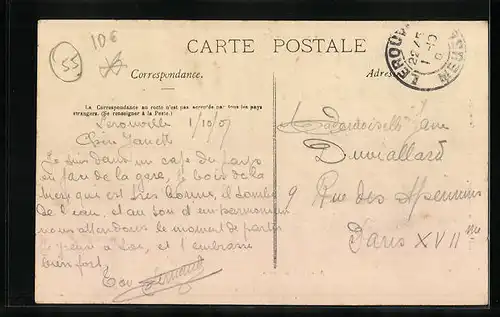 55
10€
CARTE POSTALE
Correspondance.
Adres
LEROUV
22 45
1 -10
MEUSE
La Correspondance au recto n'est pas acceptée par tous les pays
étrangers. (Se renseigner à la Poste.)
Lerouville 1/10/07
Chère Janette
Je suis dans un café du pays
en face de la gare, je bois de la
qui est très bonne, il tombe
de l'eau, et au son d'un
nous attendons le moment de partir
Je pense à toi, et t'embrasse
bien fort
Ton
Mademoiselle Jane
Duviallard
9 Rue des Apennins
Paris XVII me